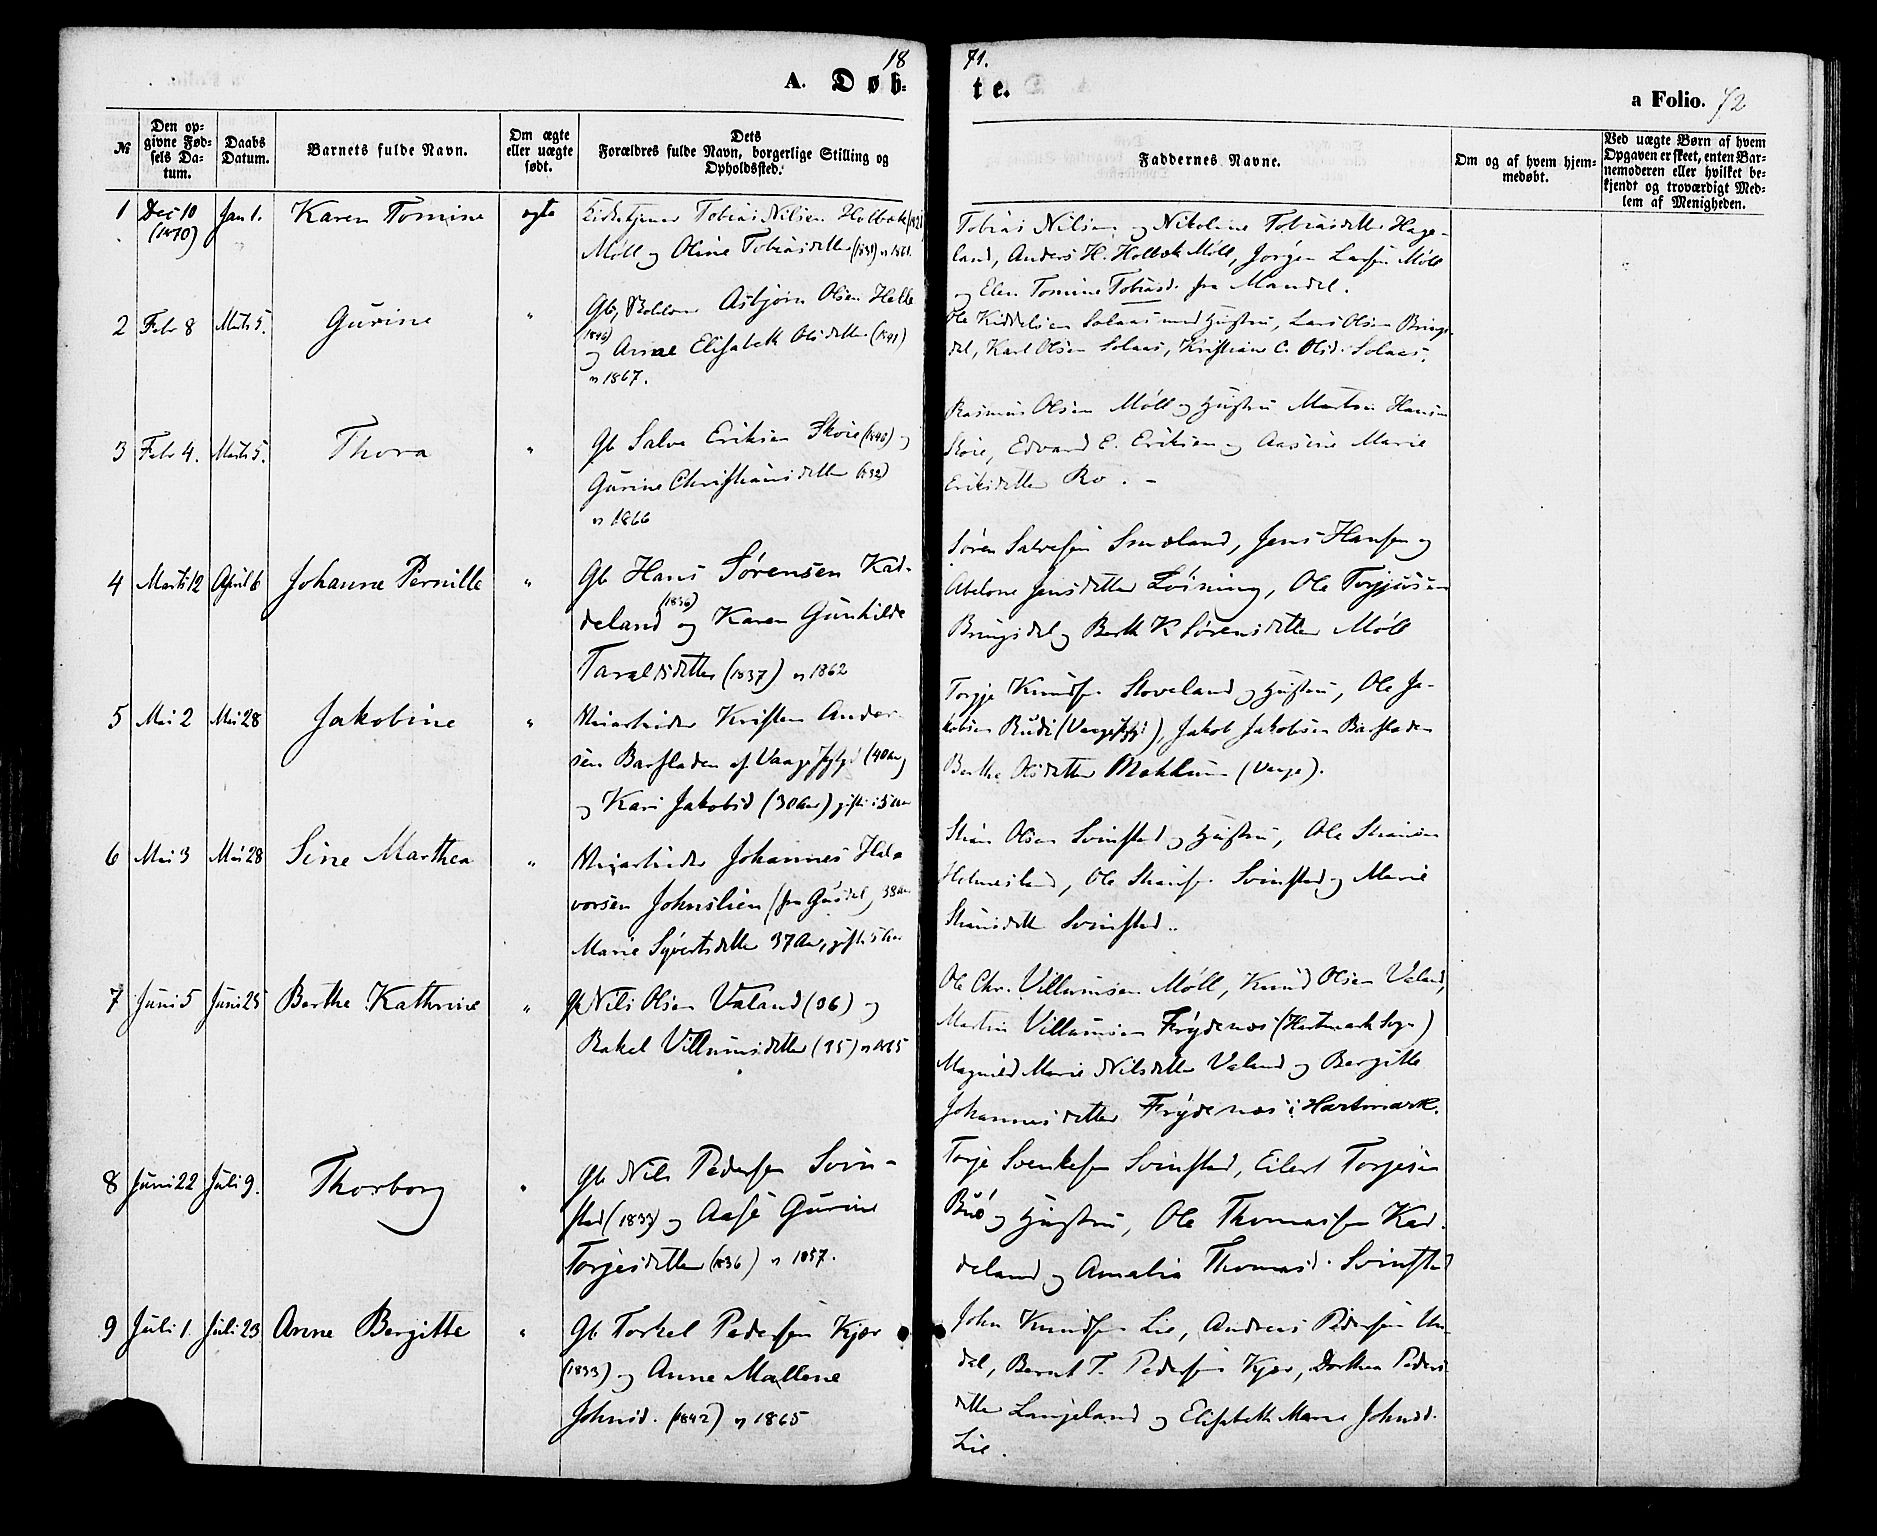 1871.
A. Døb-te.
a Folio. 72
№
Den opgivne Fødsels Datum.
Daabs Datum.
Barnets fulde Navn.
Om ægte eller uægte født.
Dets Forældres fulde Navn, borgerlige Stilling og Opholdssted.
Faddernes Navne.
Om og af hvem hjemmedøbt.
Ved uægte Børn af hvem Opgaven er skeet, enten Barnemoderen eller hvilket bekjendt og troværdigt Medlem af Menigheden.
1 Dec 10 (1870) Jan 1. Karen Tomine ægte
Kirketjener Tobias Nilsen Holbæk
Møll og Oline Tobiasdatter
Tobias Nilsen og Nikoline Tobiasdatter Hage-
land, Anders H. Holbæk Møll, Jørgen Larsen Møll
og Elen Tomine Tobiasd. fra Mandal.
2 Febr 8 Marts 5. Gurine "
Gb, Skolelærer Asbjørn Olsen Helle
og Anne Elisabeth Olsdatter (1841)
1867.
Ole Kiddelsen Solaas med Hustru, Lars Olsen Brings-
dal, Karl Olsen Solaas, Kristiane C. Olsd. Solaas.
3 Febr 4. Marts 5. Thora "
Gb Salve Eriksen Skoie (1840) og
Gurine Christiansdatter (1832)
1866
Rasmus Olsen Møll og Hustru Martin Hansen
Skoie, Edvard E. Eriksen og Aasine Marie
Eriksdatter Ro. -
4 Marts 12 April 6 Johanne Pernille "
Gb Hans Sørensen Kad-
deland (1836) og Karen Gunhilde
Taraldsdatter (1837) 1862
Søren Salvesen Smeland, Jens Hansen og
Abelone Jensdatter Løining, Ole Torjusen
Bringsdal og Berth K Sørensdatter Møll
5 Mai 2 Mai 28 Jakobine "
Veiarbeider Kristen Ander-
sen Barstaden af Vaage (40 Aar)
og Kari Jakobsd (30 Aar) gifte i 5 Aar
Torje Knudsen Stoveland og Hustru, Ole Ja-
kobsen Rudi, Jakob Jakobsen Barstaden
Berthe Olsdatter (Vaage).
6 Mai 3 Mai 28 Sine Marthea "
Veiarbeider Johannes Hal-
vorsen Johnslien (fra Gusdal, 38 Aar
Marie Syvertsdatter 37 Aar, gifte 5 Aar
Stian Olsen Svinstad og Hustru, Ole Stiansen
Holmesland, Ole Stiansen Svinstad og Marie
Stiansdatter Svinstad.
7 Juni 5 Juni 25 Berthe Kathrine "
Gb Nils Olsen Valand (36) og
Rakel Villumsdatter (35) 1865
Ole Chr. Villumsen Møll, Knud Olsen Valand,
Martin Villumsen Frydenæs (Hartmark Sogn)
Magnild Marie Nilsdatter Valand og Bergitte
Johannesdatter Frydenæs i Hartmark.
8 Juni 22 Juli 9. Thorborg "
Gb Nils Pedersen Svin-
stad (1833) og Aase Gurine
Torjesdatter (1836) 1857.
Torje Svenkesen Svinstad, Eilert Torjesen
Bue og Hustru, Ole Thomassen Kad-
deland og Amalia Thomasd. Svinstad
9 Juli 1 Juli 23 Anne Bergitte "
Gb Torkel Pedersen Kjær
(1833) og Anne Mallene
Johnsd. (1842) 1865
John Knudsen Lie, Andreas Pedersen Un-
dal, Bernt T. Pedersen Kjær, Dorthea Peders-
datter Langeland og Elisabeth Marie Johnsd.
Lie.